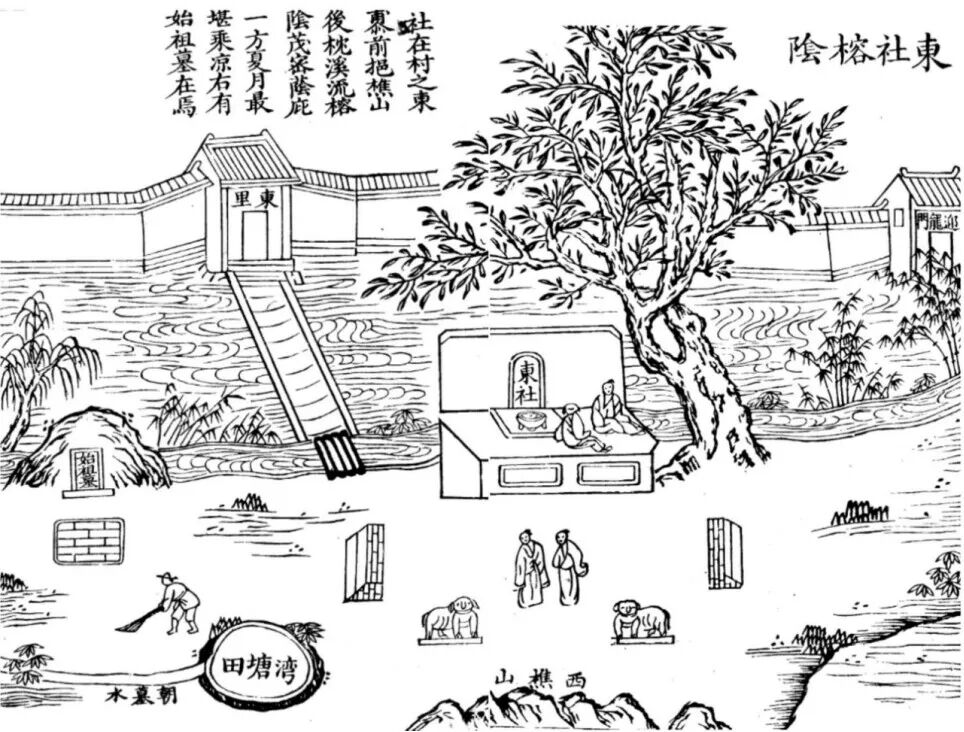 東社榕陰
社在村之東
前挹樵山
後枕溪流榕
陰茂密蔭庇
一方夏月最
堪乘凉右有
始祖墓在焉
東里
迎龍門
東社
始祖墓
湾塘田
朝墓水
西樵山